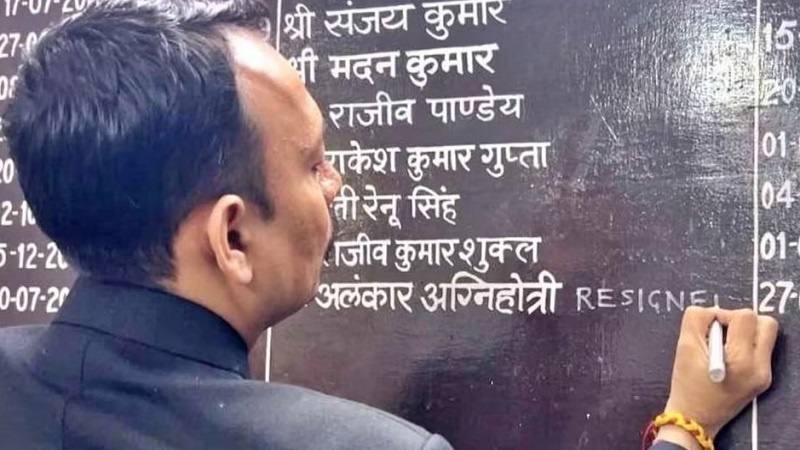 17-07-20 श्री संजय कुमार 15
27-0 श्री मदन कुमार
राजीव पाण्डेय 20
राकेश कुमार गुप्ता 01
20 ती रेनू सिंह 04
2-1 राजीव कुमार शुक्ल 01-
5-12-20
0-07-20 अलंकार अग्निहोत्री RESIGNE 27-